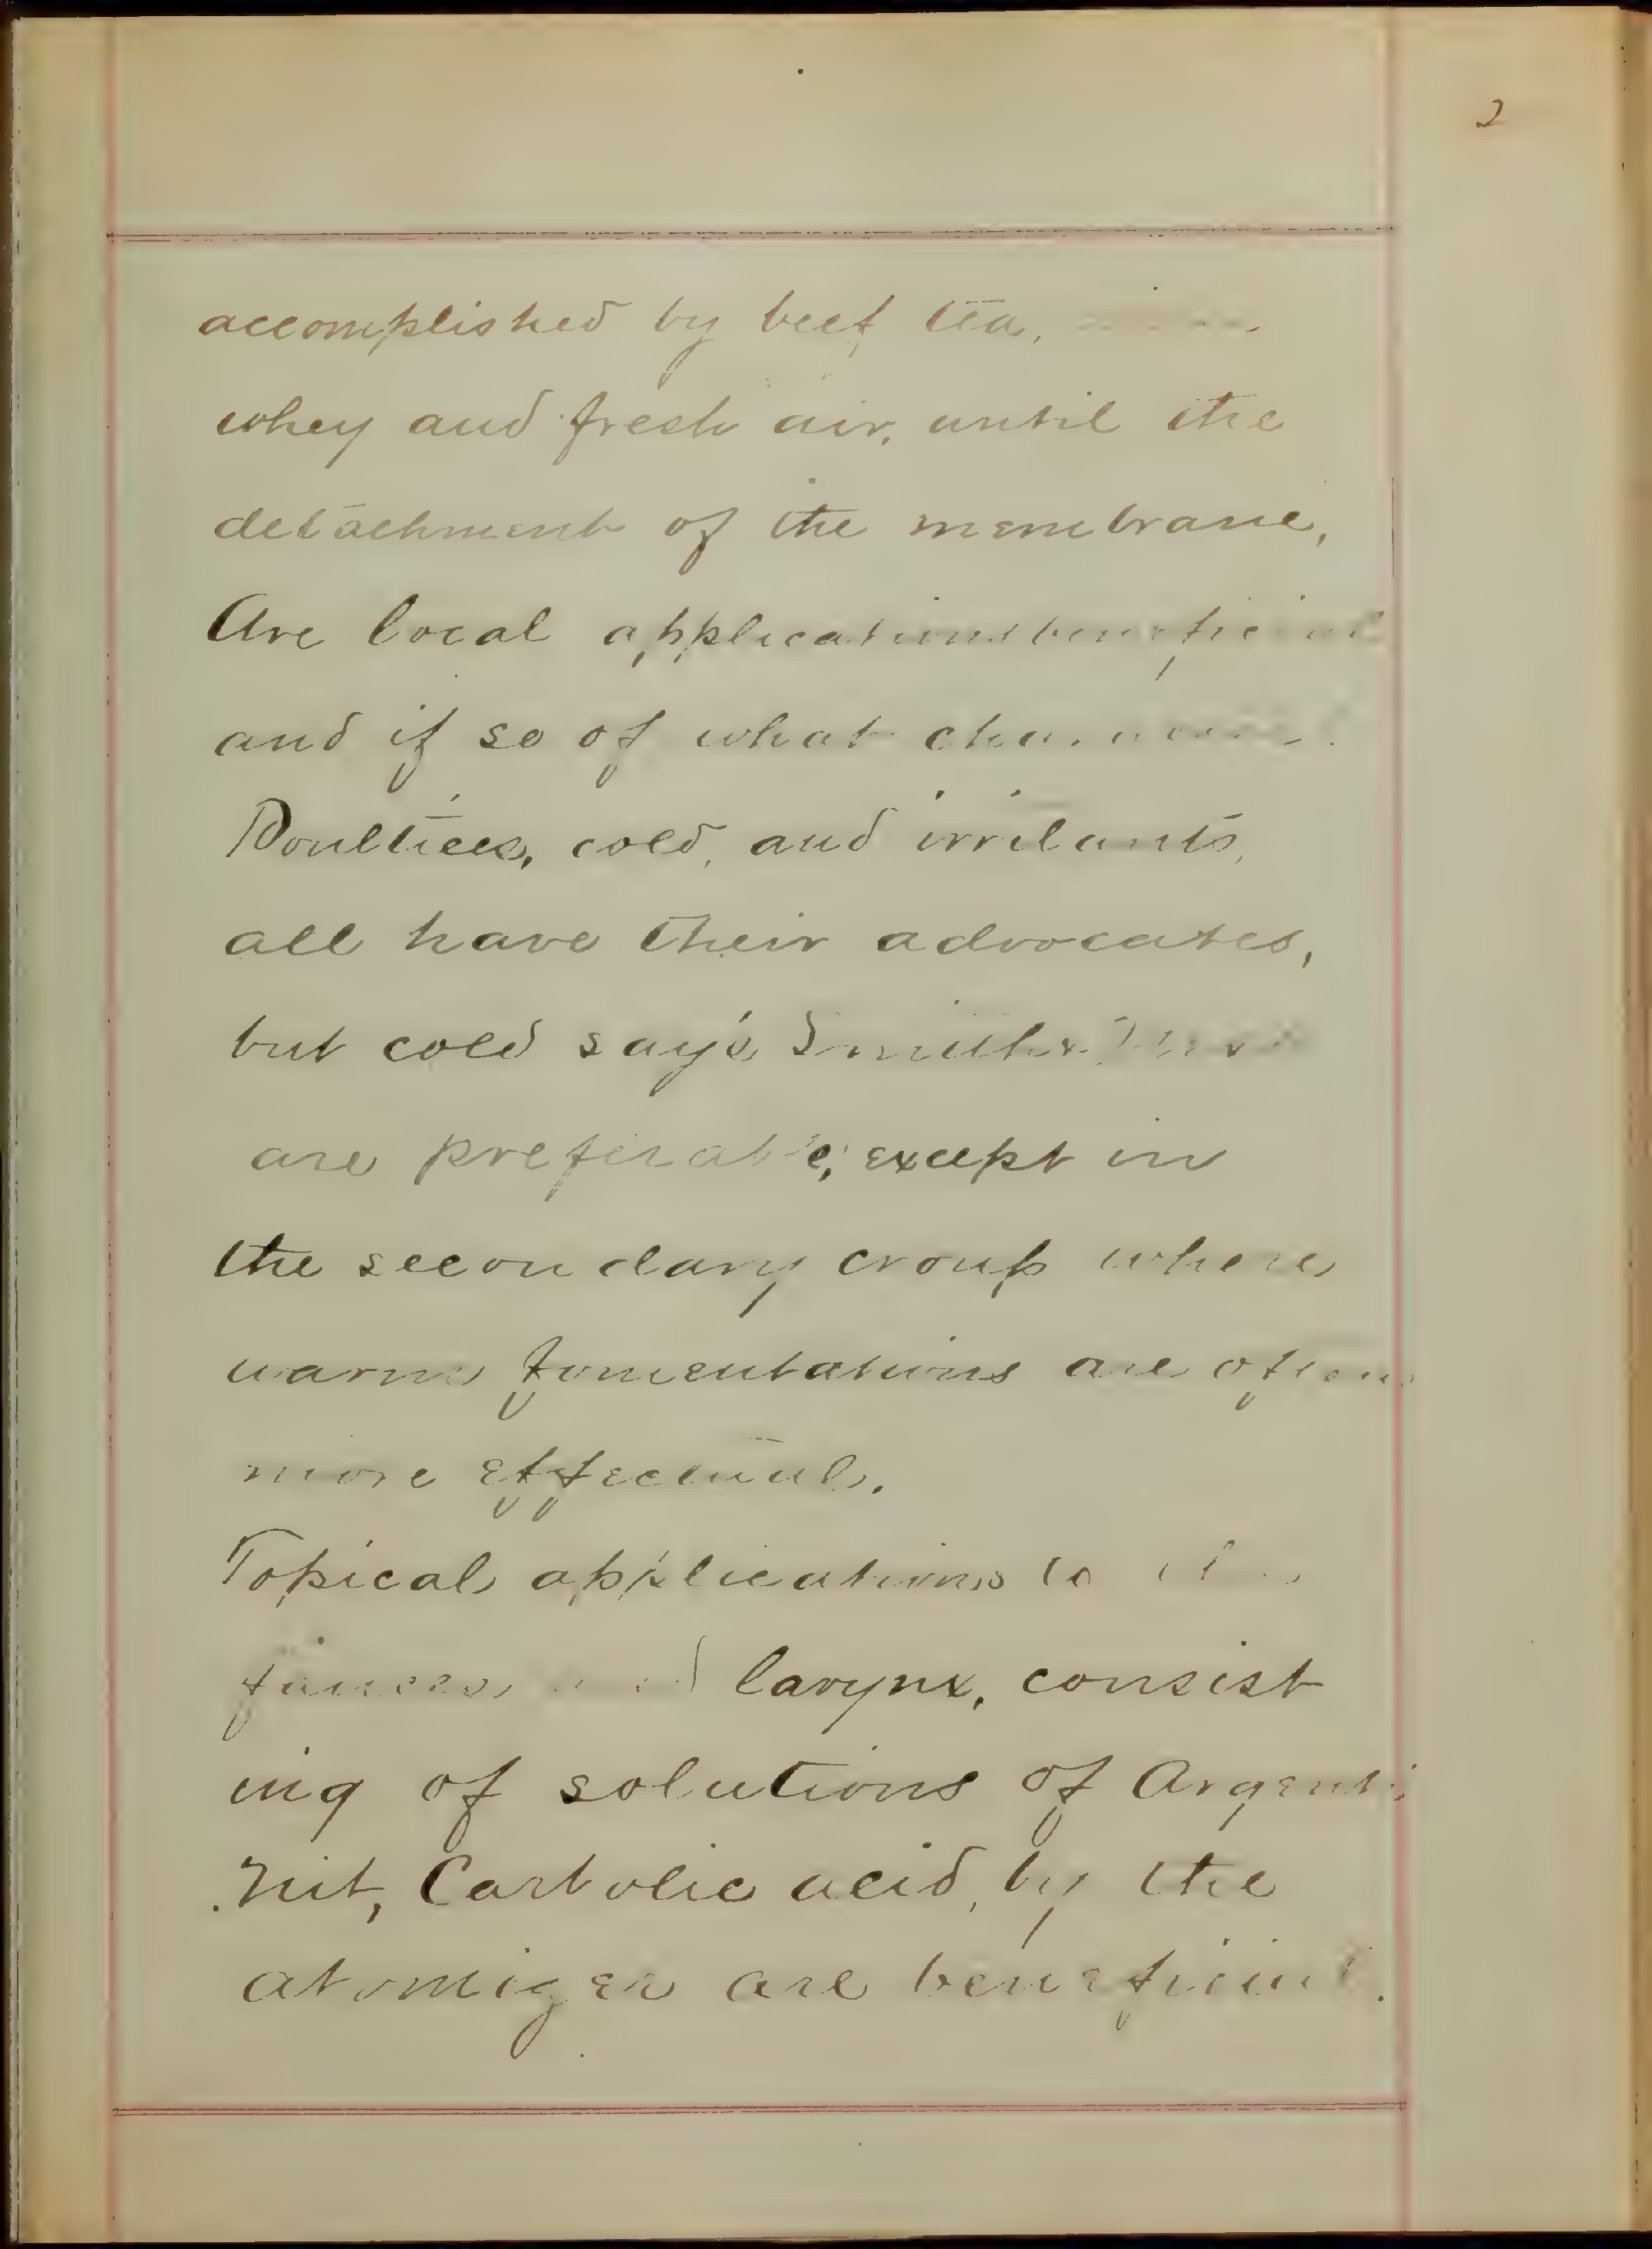 2
accomplished by beef tea,
whey and fresh air, until the
detachment of the membrane,
Are local applications beneficial
and if so of what character
Poultices, cold, and irritants,
all have their advocates,
but cold say's Smith &
are preferable, except in
the secondary croup where
warm fomentations are often
more effectual.
Topical applications to the
fauces and larynx, consist
ing of solutions of Argenti
Nit, Carbolic acid, by the
atomizer are beneficial.